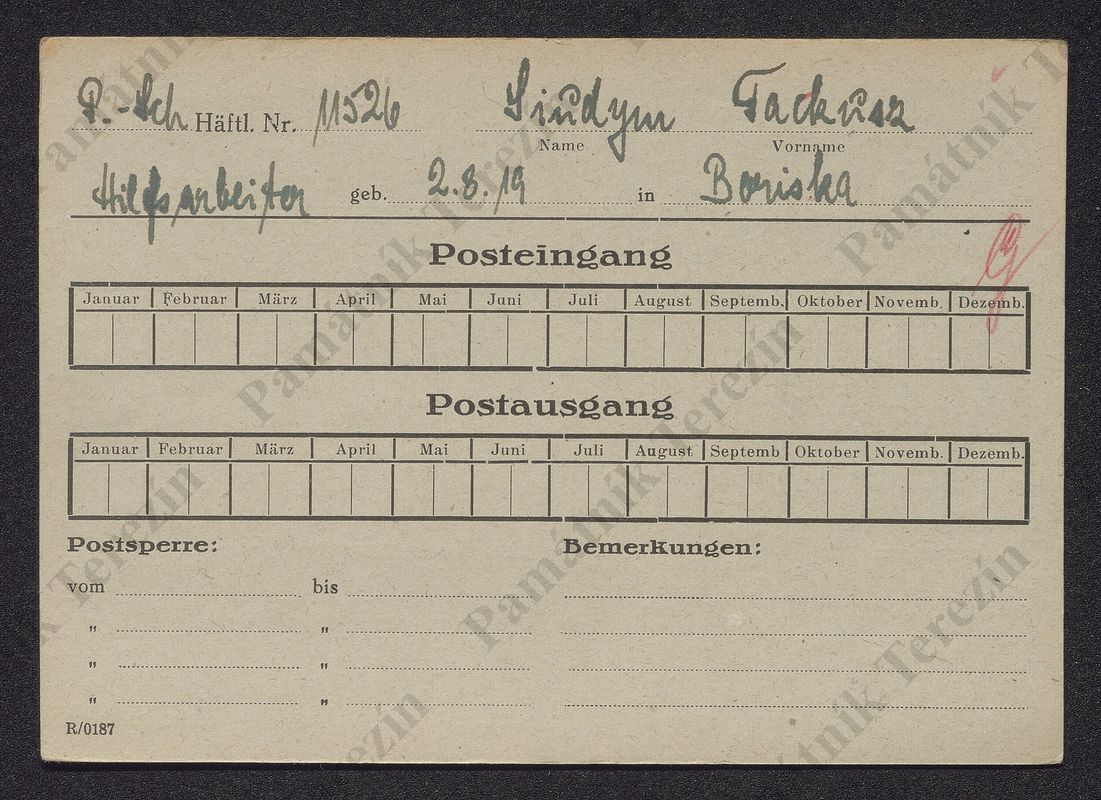 P.-Sch Häftl. Nr. 11526 Siudym Tackusz
Name Vorname
Hilfsarbeiter geb. 2.8.19 in Boriska
Posteingang
Januar Februar März April Mai Juni Juli August Septemb. Oktober Novemb. Dezemb.
Postausgang
Januar Februar März April Mai Juni Juli August Septemb Oktober Novemb. Dezemb.
Postsperre: Bemerkungen:
vom bis
" "
" "
" "
R/0187
Památník Terezín
Památník Terezín
Památník Terezín
Památník Terezín
Památník Terezín